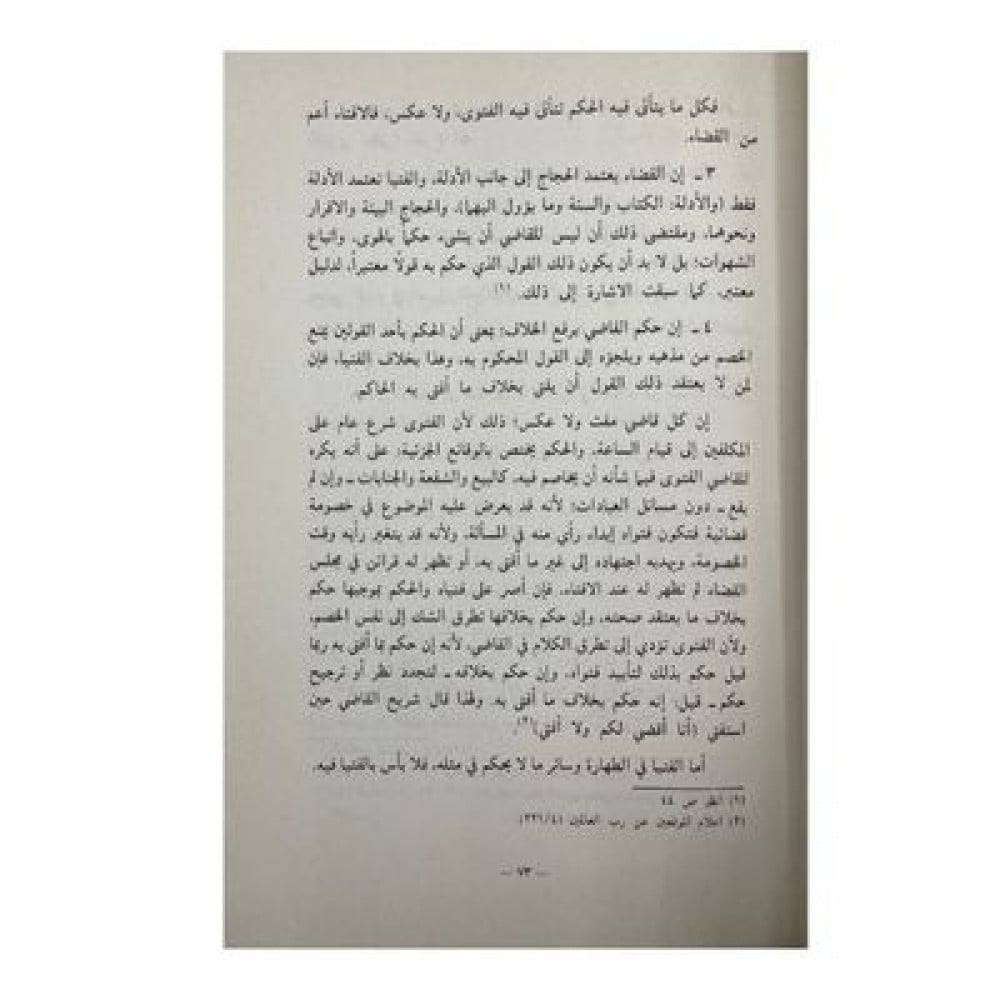 فكل ما يتأتى فيه الحكم تتأتى فيه الفتوى، ولا عكس، فالافتاء أعم
من القضاء.
٣ ـ إن القضاء يعتمد الحجاج إلى جانب الأدلة، والفتيا تعتمد الأدلة
فقط (والأدلة: الكتاب والسنة وما يؤول اليهما)، والحجاج البينة والاقرار
ونحوهما، ومقتضى ذلك أن ليس للقاضي أن ينشىء حكماً بالهوى، واتباع
الشهوات؛ بل لا بد أن يكون ذلك القول الذي حكم به قولاً معتبراً، لدليل
معتبر، كما سبقت الاشارة إلى ذلك.(١)
٤ ـ إن حكم القاضي يرفع الخلاف؛ بمعنى أن الحكم بأحد القولين يمنع
الخصم من مذهبه ويلجزه إلى القول المحكوم به، وهذا بخلاف الفتيا، فإن
لمن لا يعتقد ذلك القول أن يفتي بخلاف ما أفتى به الحاكم.
إن كل قاضي مفت ولا عكس؛ ذلك لأن الفتوى شرع عام على
المكلفين إلى قيام الساعة، والحكم يختص بالوقائع الجزئية؛ على أنه يكره
للقاضي الفتوى فيما شأنه أن يخاصم فيه، كالبيع والشفعة والجنايات ـ وإن لم
يقع ـ دون مسائل العبادات؛ لأنه قد يعرض عليه الموضوع في خصومة
قضائية فتكون فتواه إبداء رأي منه في المسألة، ولأنه قد يتغير رأيه وقت
الخصومة، ويهديه اجتهاده إلى غير ما أفتى به، أو تظهر له قرائن في مجلس
القضاء لم تظهر له عند الافتاء، فإن أصر على فتياه والحكم بموجبها حكم
بخلاف ما يعتقد صحته، وإن حكم بخلافها تطرق الشك إلى نفس الخصم،
ولأن الفتوى تؤدي إلى تطرق الكلام في القاضي، لأنه إن حكم بما أفتى به ربما
قيل حكم بذلك لتأييد فتواه، وإن حكم بخلافه ـ لتجدد نظر أو ترجيح
حكم ـ قيل: إنه حكم بخلاف ما أفتى به. ولهذا قال شريح القاضي حين
استفتي (أنا أقضي لكم ولا أفتي)(٢).
أما الفتيا في الطهارة وسائر ما لا يحكم في مثله، فلا بأس بالفتيا فيه.
(١) انظر ص ٤٤
(٢) اعلام الموقعين عن رب العالمين (٢٢١/٤)
— ٧٣ —